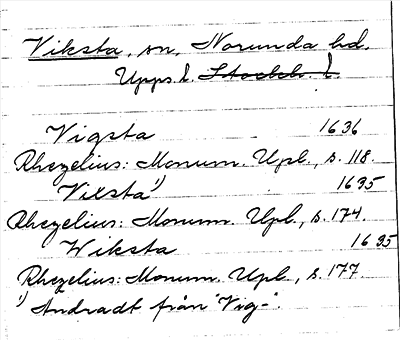 Viksta, sn, Norunda hd.
Upps. l. Stockh. l.
Vigsta 1636
Rhezelius: Monum. Upl., s. 118.
Vixsta¹) 1635
Rhezelius: Monum. Upl., s. 174.
Wiksta 1635
Rhezelius: Monum. Upl., s. 177
¹) Ändradt från "Vig-".